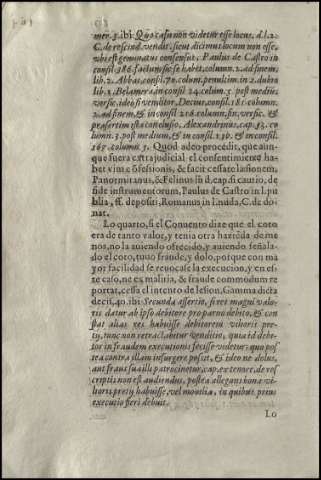 mer. 5. ibi: Quo casu non videtur esse locus, d. l. 2.
C. de rescind. vendit. sicut dicimus locum non esse,
vbi est geminatus consensus. Paulus de Castro in
consil. 386. factum sic se habet, column. 2. ad finem,
lib. 2. Abbas, consil. 70. colum. penultim. in 2. dubio
lib. 2. Belamera in consil. 24. colum. 3. post medium
versic. ideo si venditor, Decius, consil. 181. column.
2. ad finem, & in consil. 216. column. fin. versic. &
præsertim ista conclusio. Alexandrinus, cap. 13. co
lumn. 3. post medium, & in consil. & in consil.
165. column. 3. Quod adeo procedit, que aun-
que fuera extrajudicial el consentimiento ha-
bet vim cõfessionis, & facit cessare lesionem,
Panormitanus, & Felinus in d. cap. si cautio, de
fide instrumentorum, Paulus de Castro in l. pu
blia, ff. depositi, Romanus in l. nuda, C. de do
nat.
Lo quarto, si el Conuento dize que el coto
era de tanto valor, y tenia otra hazieda de me
nos, no la auiendo ofrecido, y auiendo señala-
do el coto, tuuo fraude, y dolo, porque con ma
yor facilidad se reuocasse la execucion, y en es
te caso, ne ex malitia, & fraude commodum re
portat, cessa el intento de lesion, Gamma dicta
decis. 40. ibi: Secunda assertio, si res magni valo-
ris datur ab ipso debitore pro paruo debito, & con
stat alias res habuisse debitorem vilioris pre
tij, tunc non retractabitur venditio, quia id debi-
tor in fraudem executionis fecisse videtur: quo pos
tea contra illam insurgere possit, & ideo ne dolus,
aut fraus sua illi patrocinetur, cap. ex tenore, de res
criptis non est audiendus, postea allegans bona vi-
lioris pretij habuisse, vel mobilia, in quibus prius
executio fieri debuit.
Lo